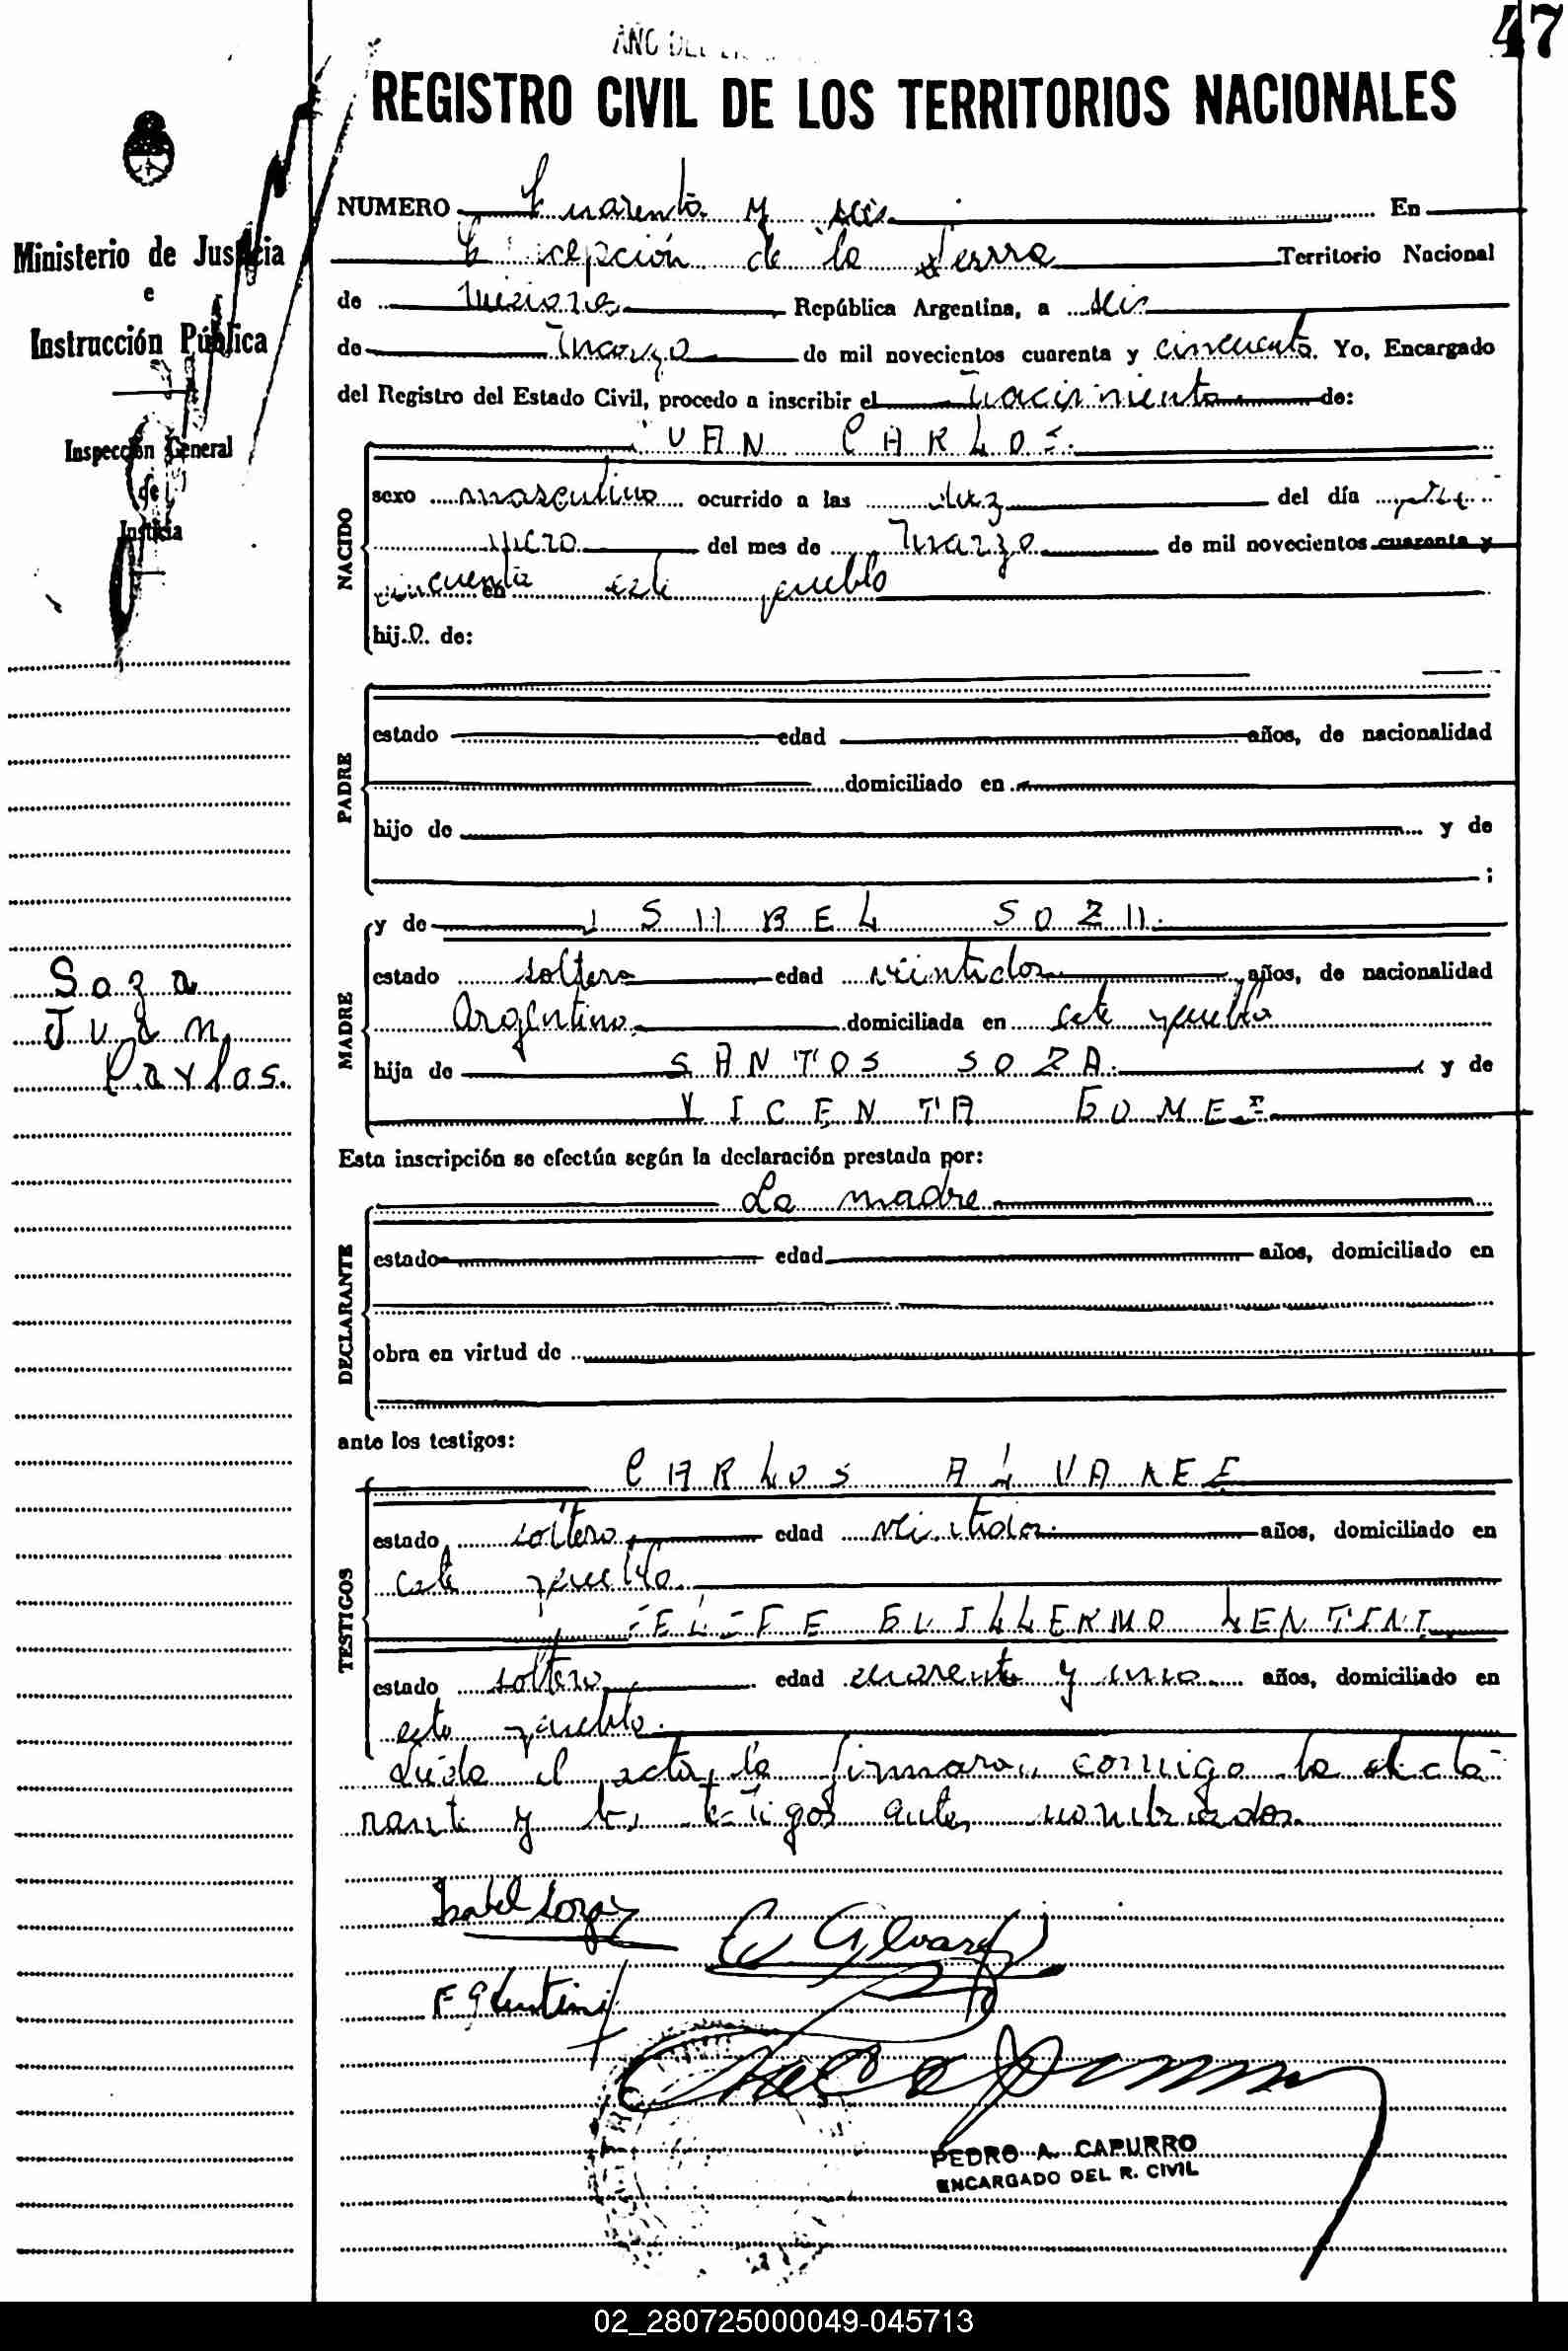 47
REGISTRO CIVIL DE LOS TERRITORIOS NACIONALES
Ministerio de Justicia
e
Instrucción Pública
Inspección General
de
Justicia
Soza
Juan
Carlos.
NUMERO Cuarenta y seis En
Concepción de la Sierra Territorio Nacional
de Misiones República Argentina, a seis
de Marzo de mil novecientos cuarenta y cincuenta. Yo, Encargado
del Registro del Estado Civil, procedo a inscribir el nacimiento de:
JUAN CARLOS.
NACIDO
sexo masculino ocurrido a las diez del día
del mes de Marzo de mil novecientos cuarenta y
cincuenta en este pueblo
hij.o. de:
PADRE
estado edad años, de nacionalidad
domiciliado en
hijo de y de
;
MADRE
y de ISABEL SOZA.
estado soltera edad veintidos años, de nacionalidad
Argentina domiciliada en este pueblo
hija de SANTOS SOZA. y de
VICENTA GOMEZ
Esta inscripción se efectúa según la declaración prestada por:
DECLARANTE
La madre
estado edad años, domiciliado en
obra en virtud de
ante los testigos:
TESTIGOS
CARLOS ALVAREZ
estado soltero edad veintidos años, domiciliado en
este pueblo.
FELIPE GUILLERMO LENTINI
estado soltero edad cuarenta y uno años, domiciliado en
este pueblo.
Leída el acta, la firmaron conmigo la decla-
rante y los testigos antes nombrados.
Isabel Soza
C. Alvarez
F G Lentini
PEDRO A. CAPURRO
ENCARGADO DEL R. CIVIL
02_280725000049-045713